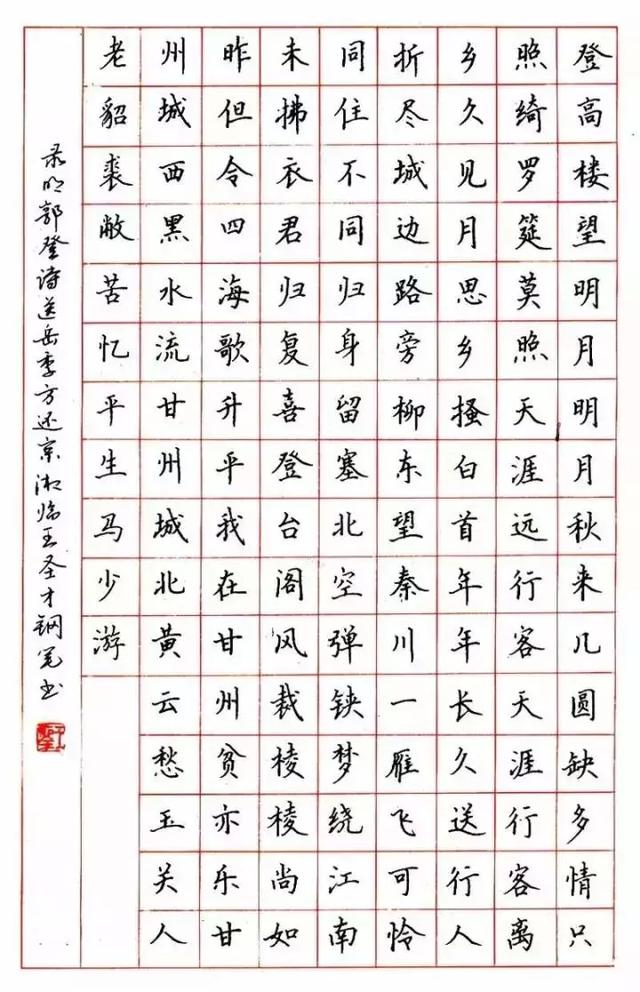 登高楼望明月明月秋来几圆缺多情只
照绮罗筵莫照天涯远行客天涯行客离
乡久见月思乡搔白首年年长久送行人
折尽城边路旁柳东望秦川一雁飞可怜
同住不同归身留塞北空弹铗梦绕江南
未拂衣君归复喜登台阁风裁棱棱尚如
昨但令四海歌升平我在甘州贫亦乐甘
州城西黑水流甘州城北黄云愁玉关人
老貂裘敝苦忆平生马少游
录明郭登诗送岳季方还京临王圣才钢笔书